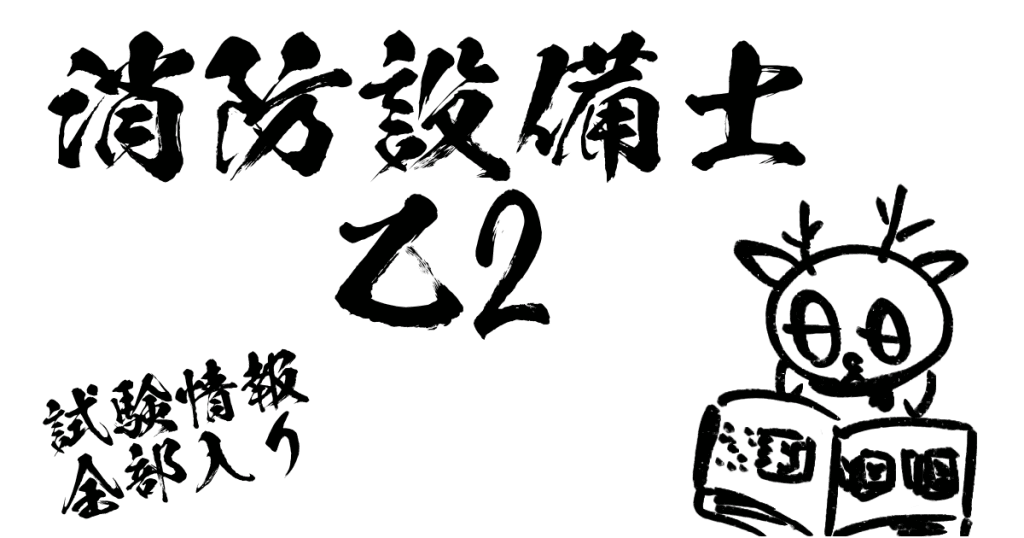 消防設備士
乙2
試験情報
全部入り